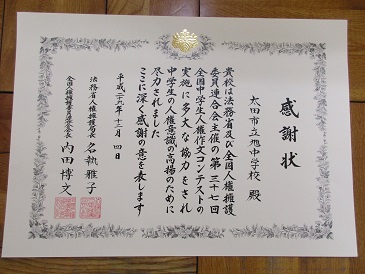 感謝状
太田市立旭中学校 殿
貴校は法務省及び全国人権擁護
委員連合会主催の第三十七回
全国中学生人権作文コンテストの
実施に多大な協力をされ
中学生の人権意識の高揚のために
尽力されました
ここに深く感謝の意を表します
平成二十九年十二月四日
法務省人権擁護局長 名執雅子
全国人権擁護委員連合会長 内田博文